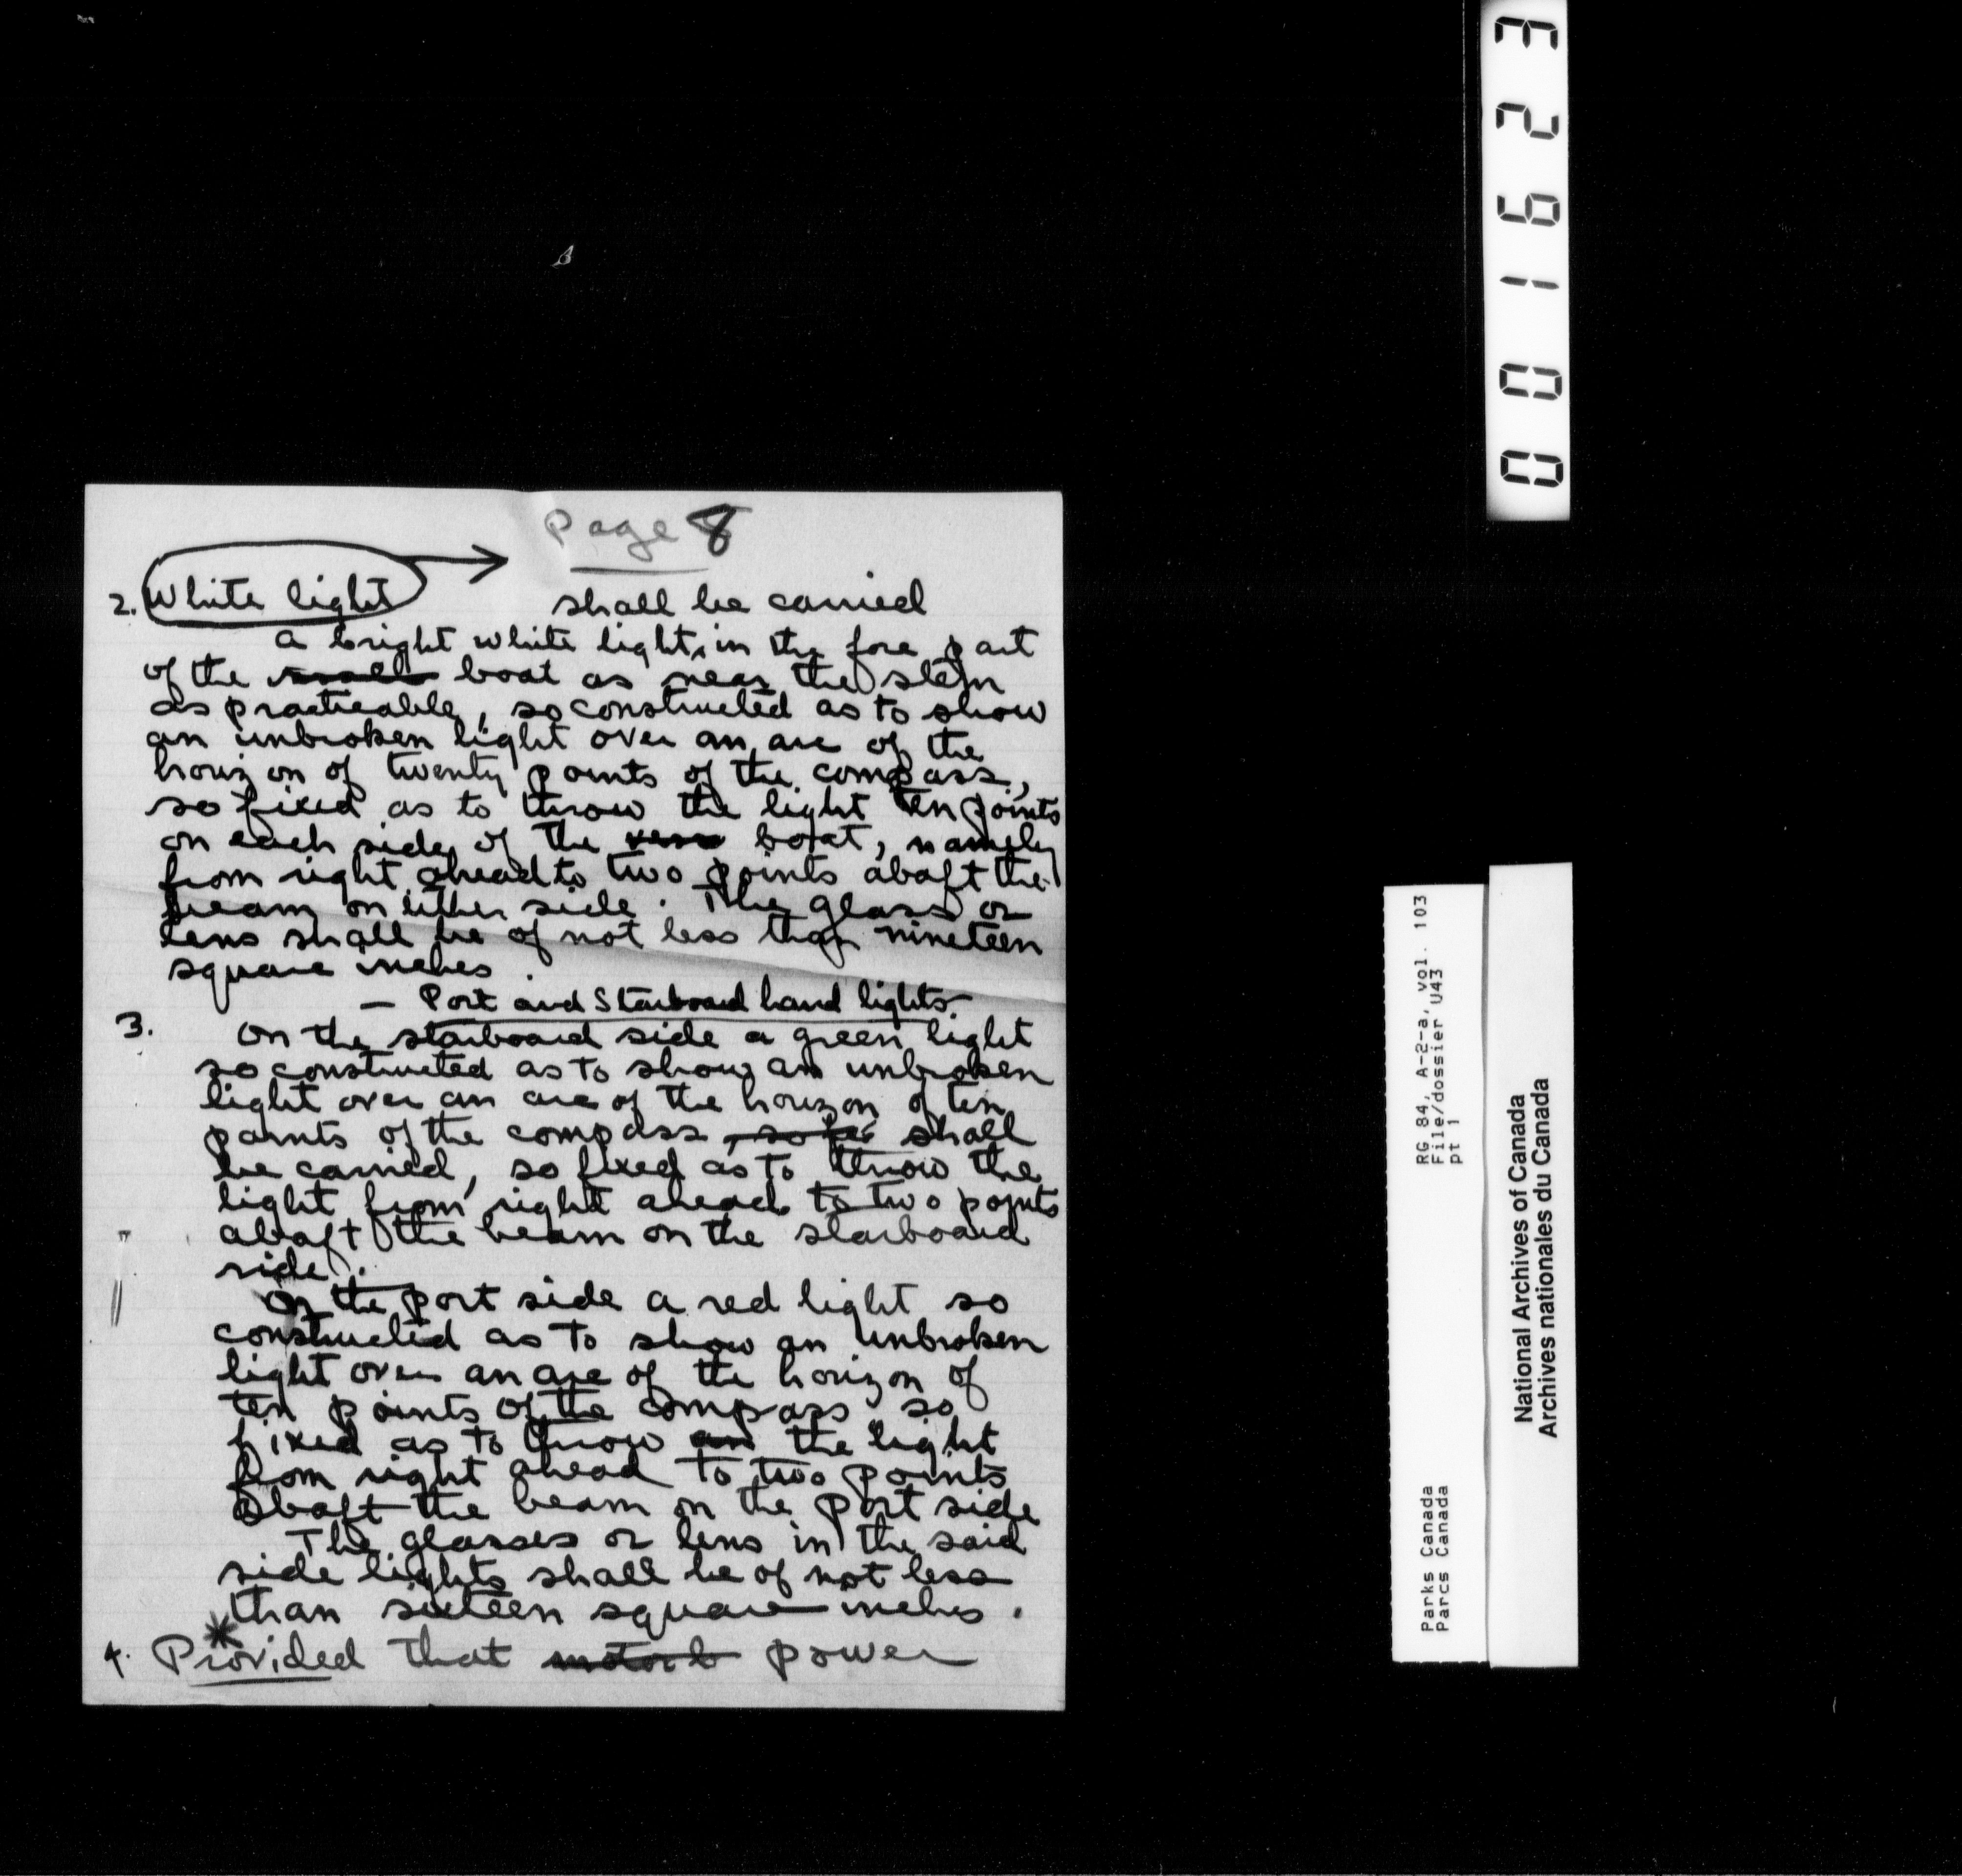 Page 8
2. White light
shall be carried
a bright white light, in the fore part
of the small boat as near the stem
as practicable, so constructed as to show
an unbroken light over an arc of the
horizon of twenty points of the compass,
so fixed as to throw the light ten points
on each side of the boat, namely
from right ahead to two points abaft the
beam on either side. The glass or
lens shall be of not less than nineteen
square inches.
— Port and Starboard hand lights —
3. On the starboard side a green light
so constructed as to show an unbroken
light over an arc of the horizon of ten
points of the compass, so fix shall
be carried, so fixed as to throw the
light from right ahead to two points
abaft the beam on the starboard
side.
On the port side a red light so
constructed as to show an unbroken
light over an arc of the horizon of
ten points of the compass so
fixed as to throw an the light
from right ahead to two points
abaft the beam on the port side
The glasses or lens in the said
side lights shall be of not less
than sixteen square inches.
*
4. Provided that motorb power
001623
RG 84, A-2-a, vol. 103
File/dossier U43
pt 1
Parks Canada
Parcs Canada
National Archives of Canada
Archives nationales du Canada